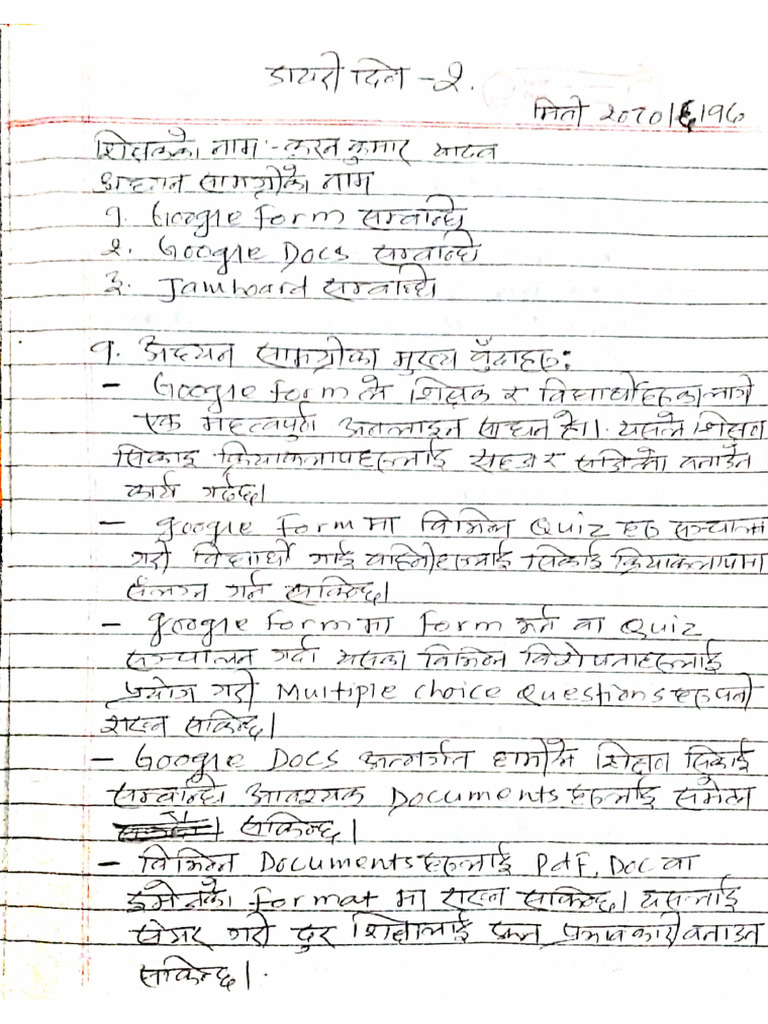 डायरी दिन - २.
मिती २०८०।६।१८
शिक्षकको नाम :- करन कुमार यादव
अध्ययन सामग्रीको नाम
१. Google Form सम्बन्धि
२. Google Docs सम्बन्धि
३. Jamboard सम्बन्धि
१. अध्ययन सामग्रीका मुख्य बुँदाहरु :
- Google form ले शिक्षक र विद्यार्थीहरुका लागि
एक महत्वपुर्ण अनलाइन साधन हो। यसले शिक्षण
सिकाइ क्रियाकलापहरुलाई सहज र सजिलो बनाउने
कार्य गर्दछ।
- google Form मा विभिन्न Quiz हरु सञ्चालन
गरी विद्यार्थी भाई बहिनीहरुलाई सिकाई क्रियाकलापमा
संलग्न गर्न सकिन्छ।
- google Form मा Form भर्न वा Quiz
सञ्चालन गर्दा यसका विभिन्न विशेषताहरुलाई
प्रयोग गरी Multiple choice Questions हरु पनी
राख्न सकिन्छ।
- Google DOCS अन्तर्गत हामीले शिक्षण सिकाई
सम्बन्धि आवश्यक Documents हरुलाई समेट्न
सकिन्छ।
- विभिन्न Documents हरुलाई Pdf, Doc वा
इमेलको format मा राख्न सकिन्छ। यसलाई
सेयर गरी दुर शिक्षालाई प्रभावकारी बनाउन
सकिन्छ।